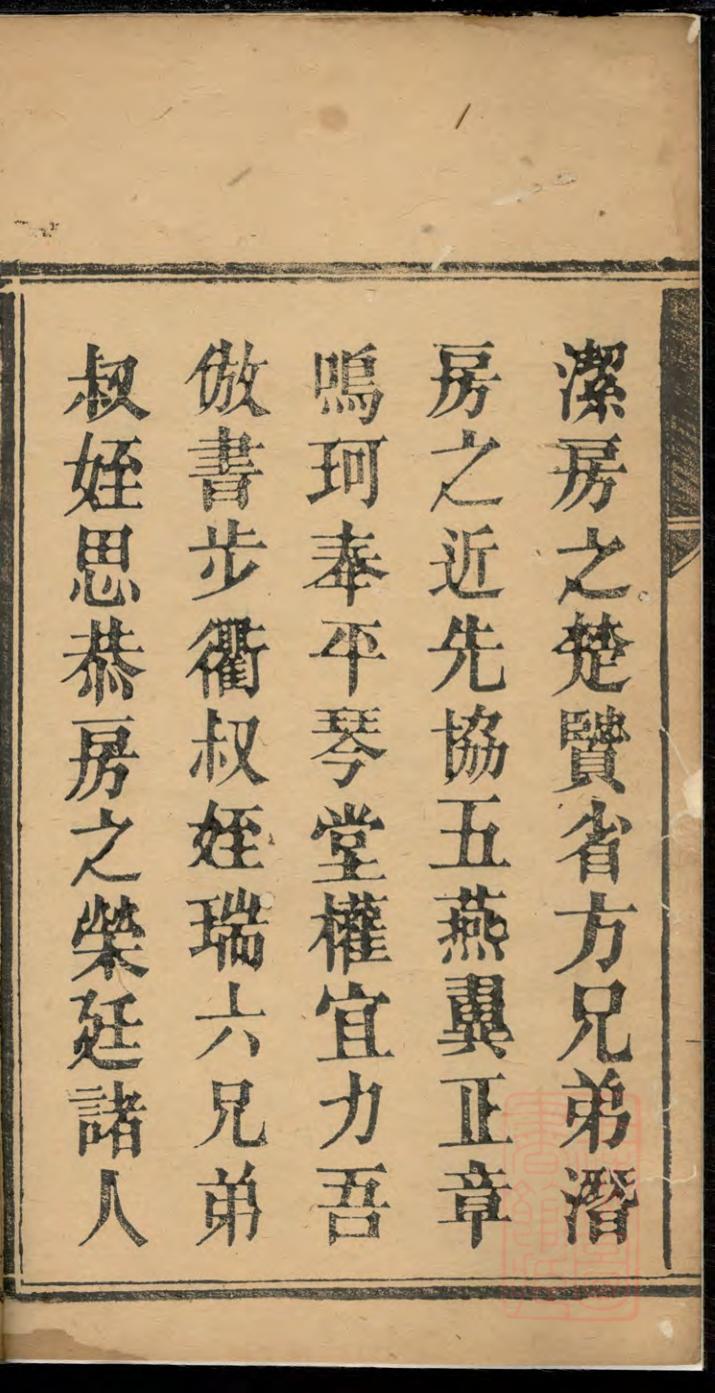 潔房之楚贒省方兄弟潛
房之近先協五燕翼正章
鳴珂奉平琴堂權宜力吾
倣書步衢叔姪瑞六兄弟
叔姪思恭房之榮廷諸人